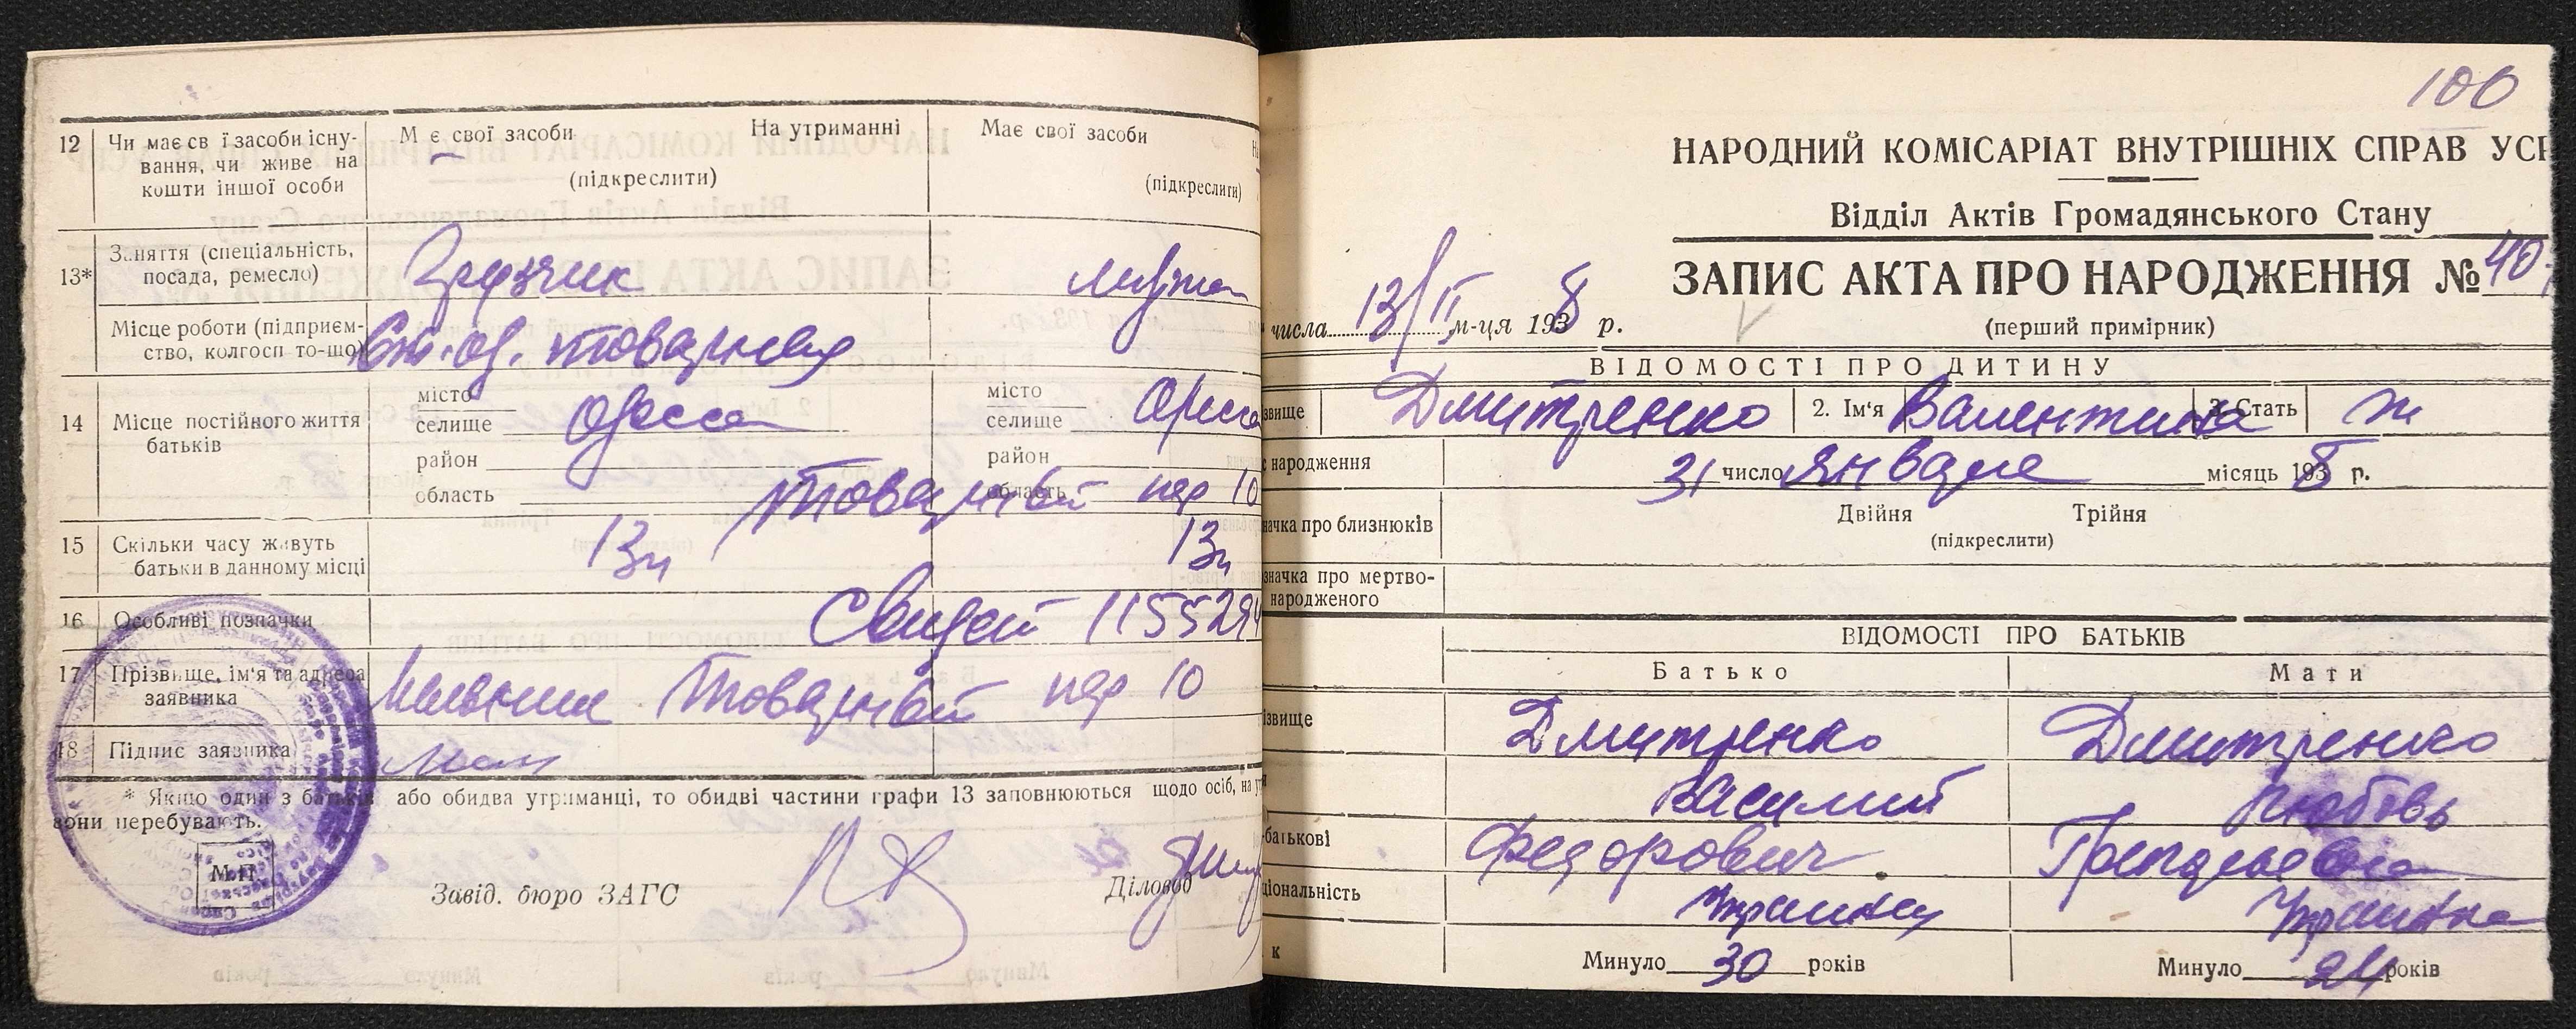 12 Чи має св ї засоби існу-
вання, чи живе на
кошти іншої особи
М є свої засоби На утриманні Має свої засоби
(підкреслити) (підкреслити)
13* Заняття (спеціальність,
посада, ремесло)
Грузчик
Місце роботи (підприєм-
ство, колгосп то-що)
Ст. Од. товарная
14 Місце постійного життя
батьків
місто
селище Одесса
район
область
місто
селище Одесса
район
область
Товарный пер 10
15 Скільки часу живуть
батьки в данному місці
13 13
16 Особливі позначки
Свидет 115529
17 Прізвище, ім'я та адреса
заявника
Товарный пер 10
18 Підпис заявника
* Якщо один з батьків або обидва утриманці, то обидві частини графи 13 заповнюються щодо осіб, на
вони перебувають.
М.П.
Завід. бюро ЗАГС Діловод
100
НАРОДНИЙ КОМІСАРІАТ ВНУТРІШНІХ СПРАВ УС
Відділ Актів Громадянського Стану
ЗАПИС АКТА ПРО НАРОДЖЕННЯ № 40
числа 13/II м-ця 1938 р. (перший примірник)
ВІДОМОСТІ ПРО ДИТИНУ
звище Дмитренко 2. Ім'я Валентина 3. Стать ж
народження 31 число января місяць 1938 р.
начка про близнюків Двійня Трійня
(підкреслити)
значка про мертво-
народженого
ВІДОМОСТІ ПРО БАТЬКІВ
Батько Мати
ізвище Дмитренко Дмитренко
Василий Любовь
батькові Федорович
ціональність Украинец Украинка
к Минуло 30 років Минуло 24 років